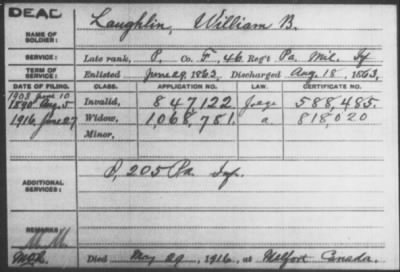 DEAD
NAME OF SOLDIER: Laughlin, William B.
SERVICE: Late rank, P, Co. F, 46 Reg't Pa. Mil. Inf
TERM OF SERVICE: Enlisted June 29, 1863, Discharged Aug. 18, 1863,
DATE OF FILING. CLASS. APPLICATION NO. LAW. CERTIFICATE NO.
1908 June 10
1890 Aug. 5 Invalid, 847122 588,485.
1916 June 27 Widow, 1068,781. a 818,020
Minor,
ADDITIONAL SERVICES: P, 205 Pa Inf.
REMARKS
Died May 29, 1916, at Melfort Canada.